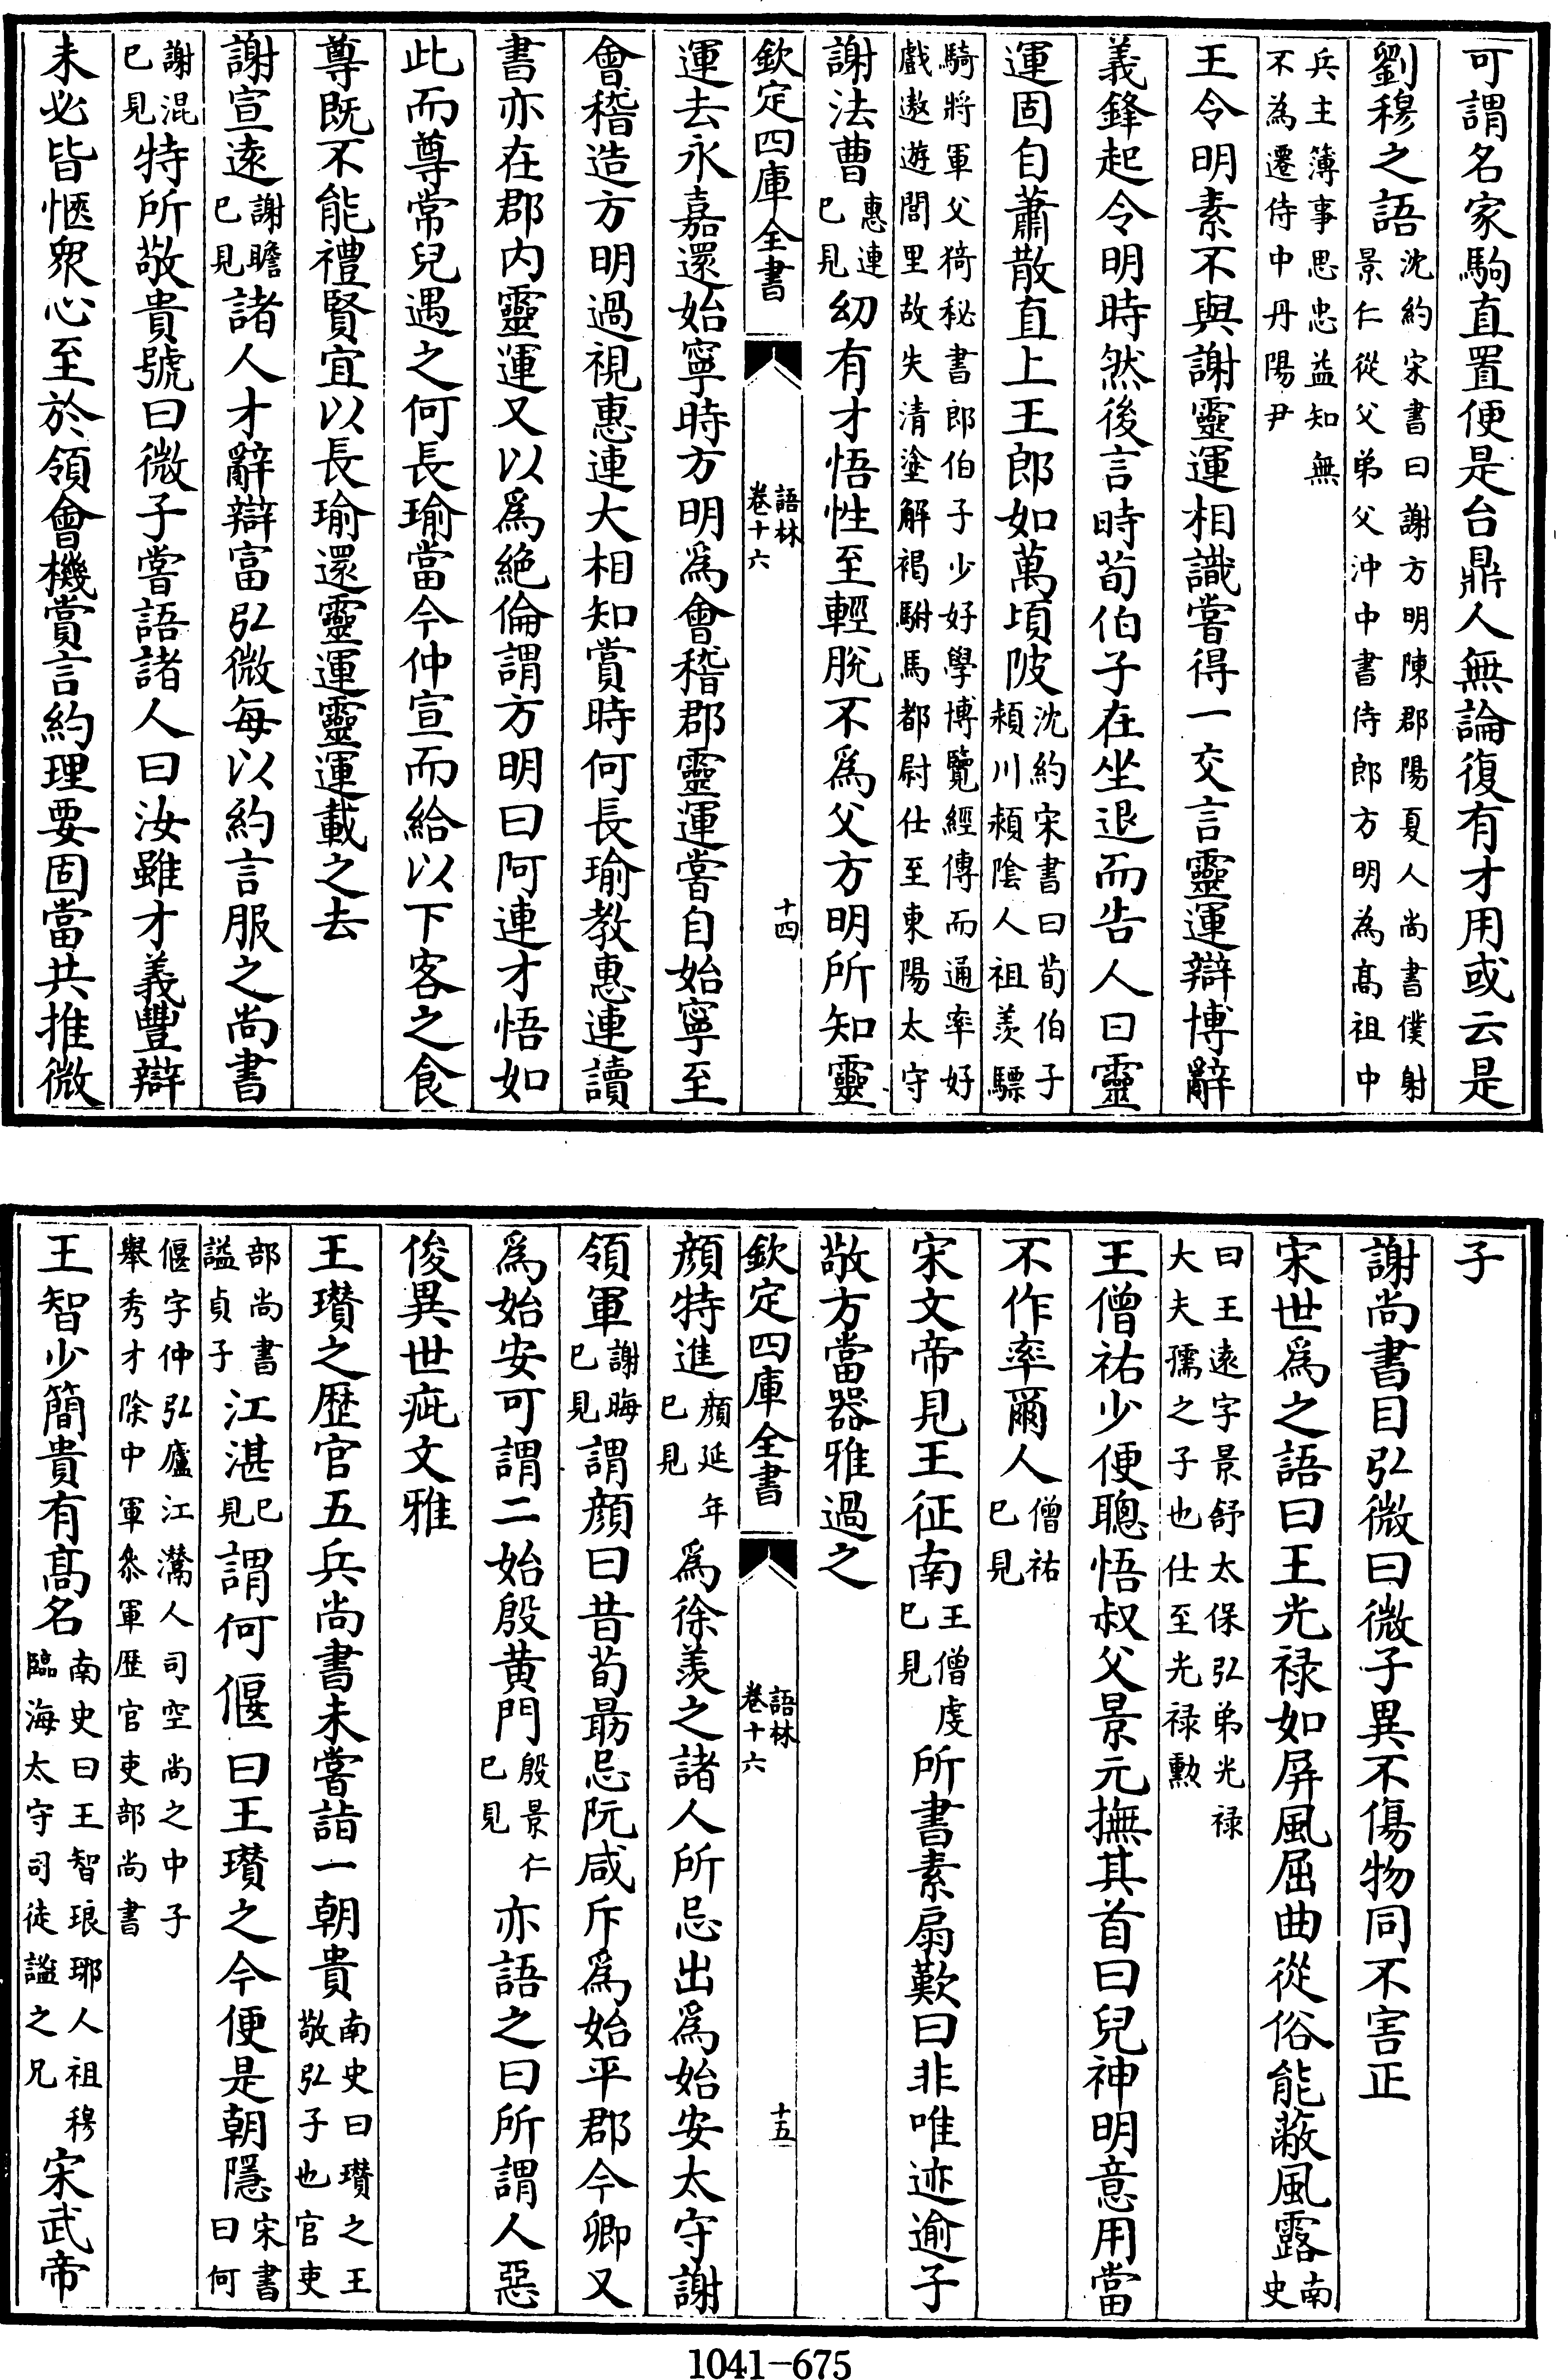 可謂名家駒直置便是台鼎人無論復有才用或云是
劉穆之語沈約宋書曰謝方明陳郡陽夏人尚書僕射景仁從父弟父沖中書侍郎方明為髙祖中
兵主簿事思忠益知無不為遷侍中丹陽尹
王令明素不與謝靈運相識嘗得一交言靈運辯博辭
義鋒起令明時然後言時荀伯子在坐退而告人曰靈
運固自蕭散直上王郎如萬頃陂沈約宋書曰荀伯子潁川潁陰人祖羨驃
騎將軍父猗秘書郎伯子少好學博覽經傳而通率好戲遨遊閭里故失清塗解褐駙馬都尉仕至東陽太守
謝法曹惠連已見幼有才悟性至輕脫不爲父方明所知靈
欽定四庫全書
語林
卷十六
十四
運去永嘉還始寧時方明爲會稽郡靈運嘗自始寧至
會稽造方明過視惠連大相知賞時何長瑜教惠連讀
書亦在郡内靈運又以爲絶倫謂方明曰阿連才悟如
此而尊常兒遇之何長瑜當今仲宣而給以下客之食
尊既不能禮賢宜以長瑜還靈運靈運載之去
謝宣逺謝瞻已見諸人才辭辯富弘微每以約言服之尚書
謝混已見特所敬貴號曰微子嘗語諸人曰汝雖才義豐辯
未必皆愜衆心至於領會機賞言約理要固當共推微
子
謝尚書目弘微曰微子異不傷物同不害正
宋世爲之語曰王光禄如屏風屈曲從俗能蔽風露南史
曰王逺字景舒太保弘弟光禄大夫孺之子也仕至光禄勲
王僧祐少便聰悟叔父景元撫其首曰兒神明意用當
不作率爾人僧祐已見
宋文帝見王征南王僧虔已見所書素扇歎曰非唯迹逾子
敬方當器雅過之
欽定四庫全書
語林
卷十六
十五
顔特進顔延年已見爲徐羨之諸人所忌出爲始安太守謝
領軍謝晦已見謂顔曰昔荀勗忌阮咸斥爲始平郡今卿又
爲始安可謂二始殷黄門殷景仁已見亦語之曰所謂人惡
俊異世疵文雅
王瓚之歴官五兵尚書未嘗詣一朝貴南史曰瓚之王敬弘子也官吏
部尚書諡貞子江湛已見謂何偃曰王瓚之今便是朝隱宋書曰何
偃字仲弘廬江灊人司空尚之中子舉秀才除中軍叅軍歴官吏部尚書
王智少簡貴有髙名南史曰王智琅琊人祖穆臨海太守司徒謐之兄宋武帝
1041-675